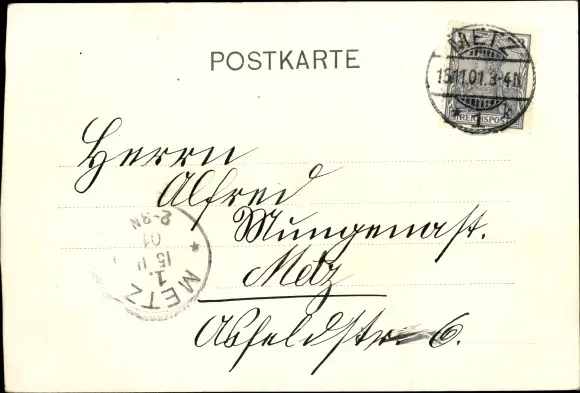 POSTKARTE
METZ
15.11.01.3-4N
* 1 k
REICHSPOST
Herrn
Alfred
Mungenast.
Metz
Asfeldstr. 6.
METZ
1.
15 11
01
2-3N
*